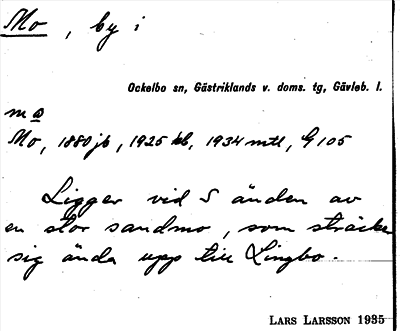 Mo, by i
Ockelbo sn, Gästriklands v. doms. tg, Gävleb. l.
Mo, 1880 jb, 1925 kb, 1934 mtl, G 105
Ligger vid S änden av
en stor sandmo, som sträcker
sig ända upp till Lingbo.
LARS LARSSON 1935